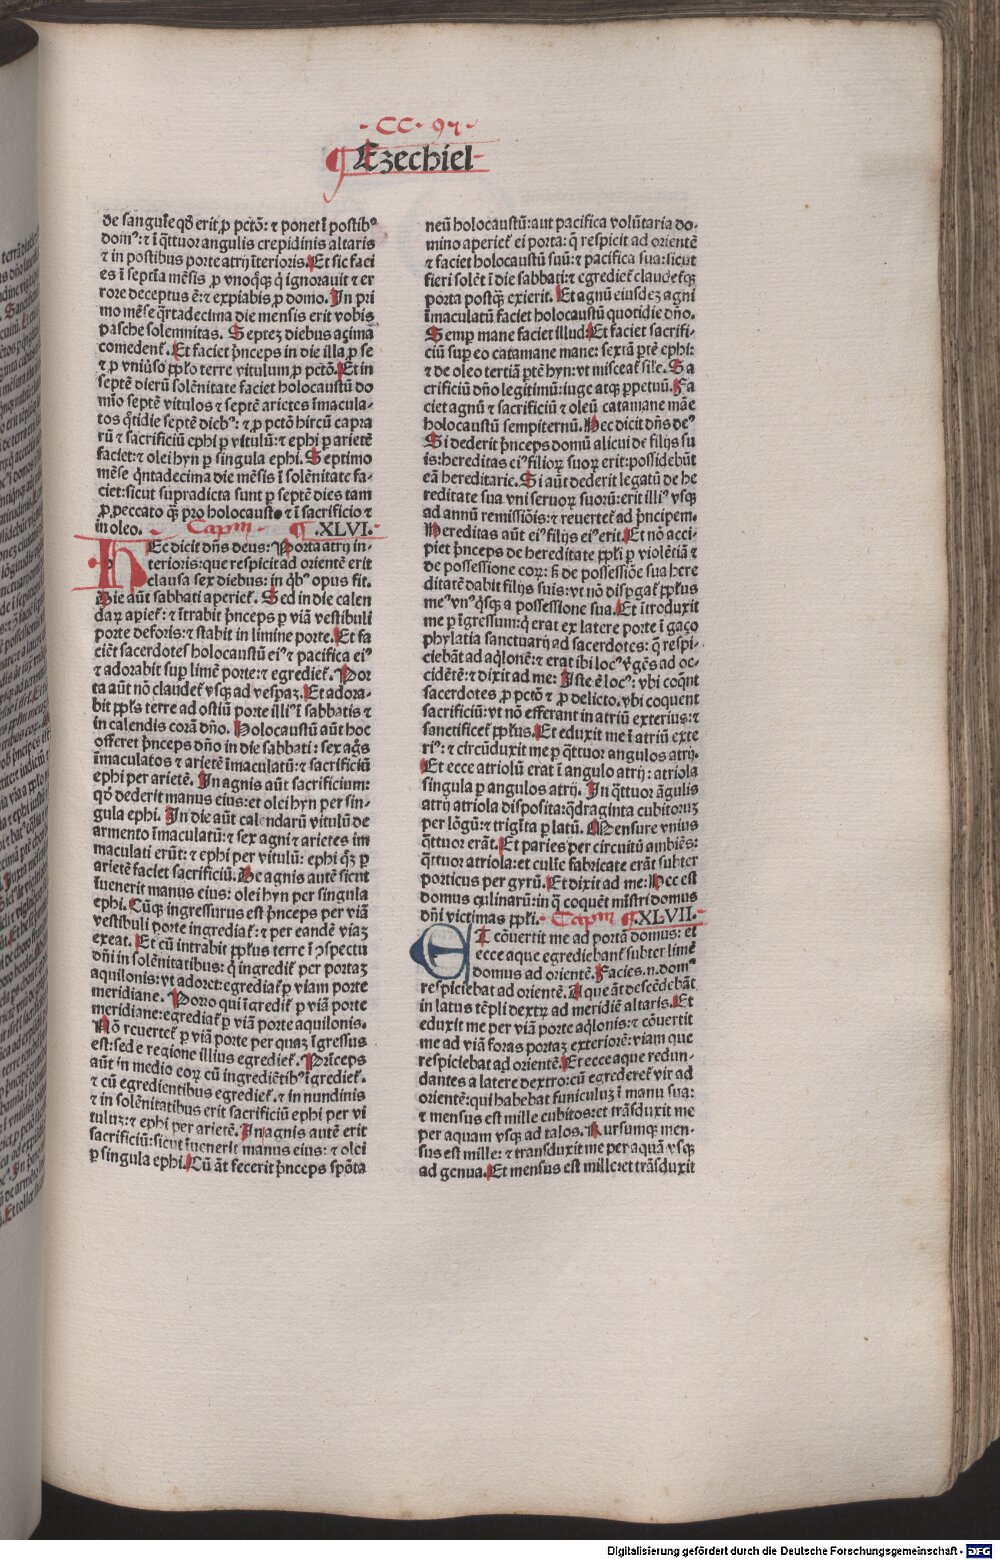 CC 97
Ezechiel
de sanguīe qḋ erit ꝓ pctō: ⁊ ponet ī postibꝰ
domꝰ: ⁊ ī q̄ttuor angulis crepidinis altaris
⁊ in postibus porte atrij īterioris. Et sic faci
es ī septīa mēsis ꝓ vnoq̄q̄ꝫ q̄ ignorauit ⁊ er
rore deceptus ē: ⁊ expiabis ꝓ domo. In pri
mo mēse q̄rtadecima die mensis erit vobis
pasche solemnitas. Septeꝫ diebus aꝫima
comedent᷑. Et faciet pͥnceps in die illa ꝓ se
⁊ ꝓ vniūso ppl̄o terre vitulum ꝓ pctō. Et in
septē dierū solēnitate faciet holocaustū do
mīo septē vitulos ⁊ septē arietes īmacula-
tos q̄tidie septē diebꝰ: ⁊ ꝓ pctō hircū capra
rū ⁊ sacrificiū ephi ꝑ vitulū: ⁊ ephi ꝑ arietē
faciet: ⁊ olei hyn ꝑ singula ephi. Septimo
mēse q̄ntadecima die mēsis ī solēnitate fa-
ciet: sicut supradicta sunt ꝑ septē dies tam
ꝓ peccato q̄ꝫ pro holocausto ⁊ ī sacrificio ⁊
in oleo. Capm .XLVI.
HEc dicit dn̄s deus: Porta atrij in-
terioris: que respicit ad orientē erit
clausa sex diebus: in qbꝰ opus fit.
Die aūt sabbati aperiet᷑. Sed in die calen
daꝝ apiet᷑: ⁊ ītrabit pͥnceps ꝑ viā vestibuli
porte deforis: ⁊ stabit in limine porte. Et fa
ciēt sacerdotes holocaustū eiꝰ ⁊ pacifica eiꝰ
⁊ adorabit sup limē porte: ⁊ egrediet᷑. Por
ta aūt nō claudet᷑ vsqꝫ ad vesperaꝫ. Et adora-
bit ppl̄s terre ad ostiū porte illiꝰ ī sabbatis ⁊
in calendis corā dn̄o. Holocaustū aūt hoc
offeret pͥnceps dn̄o in die sabbati: sex agn̄s
īmaculatos ⁊ arietē īmaculatū: ⁊ sacrificiū
ephi per arietē. In agnis aūt sacrificium:
qḋ dederit manus eius: et olei hyn per sin-
gula ephi. In die aūt calendarū vitulū de
armento īmaculatū: ⁊ sex agni ⁊ arietes im
maculati erūt: ⁊ ephi per vitulū: ephi q̄ꝫ ꝑ
arietē faciet sacrificiū. De agnis autē sicut
īuenerit manus eius: olei hyn per singula
ephi. Cūqꝫ ingressurus est pͥnceps per viā
vestibuli porte ingrediat᷑: ⁊ per eandē viaꝫ
exeat. Et cū intrabit ppl̄us terre ī ꝯspectu
dn̄i in solēnitatibus: q̄ ingredit᷑ per portaꝫ
aquilonis: vt adoret: egrediat᷑ ꝑ viam porte
meridiane. Porro qui īgredit᷑ ꝑ viā porte
meridiane: egrediat᷑ ꝑ viā porte aquilonis.
Nō reuertet᷑ ꝑ viā porte per quaꝫ īgressus
est: sed e regione illius egrediet᷑. Prīceps
aūt in medio eoꝝ cū ingrediētibꝰ īgrediet᷑.
⁊ cū egredientibus egrediet᷑. ⁊ in nundinis
⁊ in solēnitatibus erit sacrificiū ephi per vi
tuluꝫ: ⁊ ephi per arietē. In agnis autē erit
sacrificiū: sicut īuenerit manus eius: ⁊ olei
ꝑ singula ephi. Cū āt fecerit pͥnceps spōta
neū holocaustū: aut pacifica volūtaria do-
mino aperiet᷑ ei porta: q̄ respicit ad orientē
⁊ faciet holocaustū suū: ⁊ pacifica sua: sicut
fieri solēt ī die sabbati: ⁊ egrediet᷑ claudet᷑qꝫ
porta postq̄ꝫ exierit. Et agnū eiusdeꝫ agni
īmaculatū faciet holocaustū quotidie dn̄o.
Semp mane faciet illud. Et faciet sacrifi-
ciū sup eo catamane mane: sextā ꝑtē ephi:
⁊ de oleo tertiā ꝑtē hyn: vt misceat᷑ sile. Sa
crificiū dn̄o legitimū: iuge atqꝫ ꝑpetuū. Fa
ciet agnū ⁊ sacrificiū ⁊ oleū catamane māe
holocaustū sempiternū. Hec dicit dn̄s deꝰ
Si dederit pͥnceps domū alicui de filijs su
is: hereditas eiꝰ filioꝝ suoꝝ erit: possidebūt
eā hereditarie. Si aūt dederit legatū de he
reditate sua vni seruoꝝ suorū: erit illiꝰ vsqꝫ
ad annū remissiōis: ⁊ reuertet᷑ ad pͥncipem.
Hereditas aūt eiꝰ filijs eiꝰ erit. Et nō acci-
piet pͥnceps de hereditate ppl̄i ꝑ violētiā ⁊
de possessione eoꝝ: sꝫ de possessiōe sua here
ditatē dabit filijs suis: vt nō dispgat᷑ ppl̄us
meꝰ vnꝰq̄sqꝫ a possessione sua. Et ītroduxit
me ꝑ īgressum: q̄ erat ex latere porte ī gaꝫo
phylatia sanctuarij ad sacerdotes: q̄ respi-
ciebāt ad aq̄lonē: ⁊ erat ibi locꝰ v̄gēs ad oc-
cidētē: ⁊ dixit ad me: Iste ē locꝰ: vbi coq̄nt
sacerdotes ꝓ pctō ⁊ ꝓ delicto. vbi coquent
sacrificiū: vt nō efferant in atriū exterius: ⁊
sanctificet᷑ ppl̄us. Et eduxit me ī atriū exte
riꝰ: ⁊ circūduxit me ꝑ q̄ttuor angulos atrij.
Et ecce atriolū erat ī angulo atrij: atriola
singula ꝑ angulos atrij. In q̄ttuor āgulis
atrij atriola disposita: q̄draginta cubitoruꝫ
per lōgū: ⁊ trigīta ꝑ latū. Mensure vnius
q̄ttuor erāt. Et paries per circuitū ambiēs:
q̄ttuor atriola: et culīe fabricate erāt subter
porticus per gyrū. Et dixit ad me: Hec est
domus q̄ulinarū: in q̄ coquēt mīstri domus
dn̄i victimas ppl̄i. Capm .XLVII.
ET cōuertit me ad portā domus: et
ecce aque egrediebant᷑ subter limē
domus ad orientē. Facies .n. domꝰ
respiciebat ad orientē. Aque āt descēdebāt
in latus tēpli dextꝝ ad meridiē altaris. Et
eduxit me per viā porte aq̄lonis: ⁊ cōuertit
me ad viā foras portaꝫ exteriorē: viam que
respiciebat ad orientē. Et ecce aque redun-
dantes a latere dextro: cū egrederet᷑ vir ad
orientē: qui habebat funiculuꝫ ī manu sua:
⁊ mensus est mille cubitos: et trāsduxit me
per aquam vsqꝫ ad talos. Rursumqꝫ men-
sus est mille: ⁊ transduxit me per aquā vsqꝫ
ad genua. Et mensus est mille: et trāsduxit
Digitalisierung gefördert durch die Deutsche Forschungsgemeinschaft - DFG